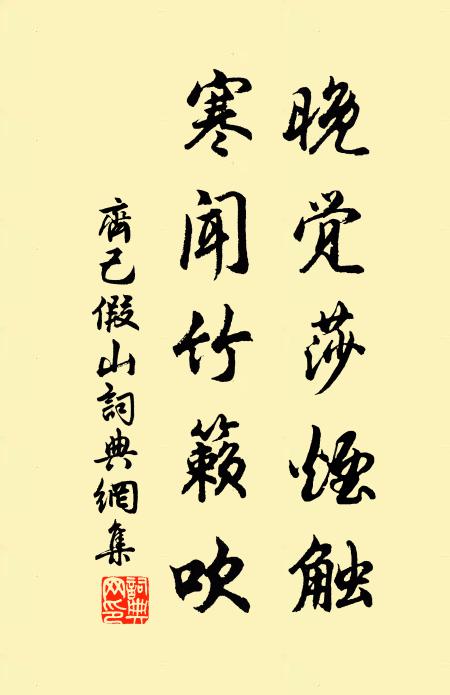 晚觉莎煙触
寒闻竹籁吹
齊己假山詞典網集